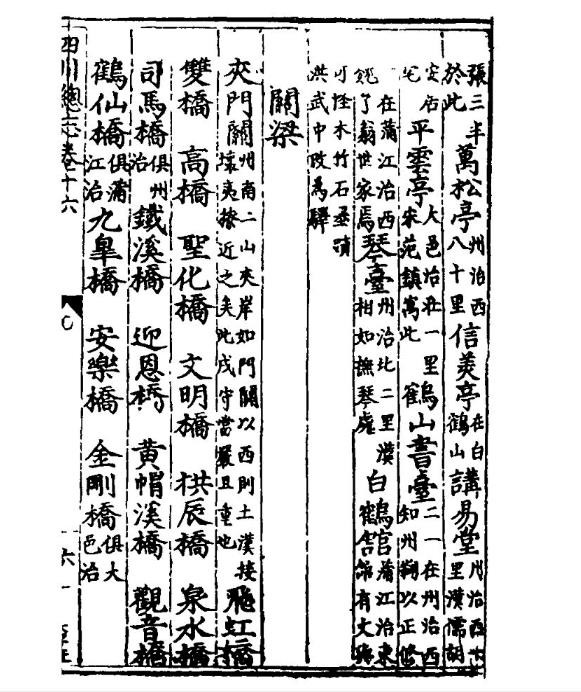 張三丰於此萬松亭州治西八十里信美亭在白鶴山講易堂州治西十里漢儒胡
安居宅平雲亭大邑治北一里宋范鎮寓此鶴山書臺二一在州治西知州鞠以正修
一在蒲江治西魏了翁世家焉琴臺州治北二里漢相如撫琴處白鶴館蒲江治東館有文與
可怪木竹石墨蹟洪武中改為驛
關梁
夾門關州南二山夾岸如門關以西則土漢接壤夷獠近之矣此戍守當嚴且重也飛虹橋
雙橋 高橋 聖化橋 文明橋 拱辰橋 泉水橋
司馬橋俱州治鐵溪橋 迎恩橋 黃帽溪橋 觀音橋
鶴仙橋俱蒲江治九皐橋 安樂橋 金剛橋俱大邑治
四川總志卷十六